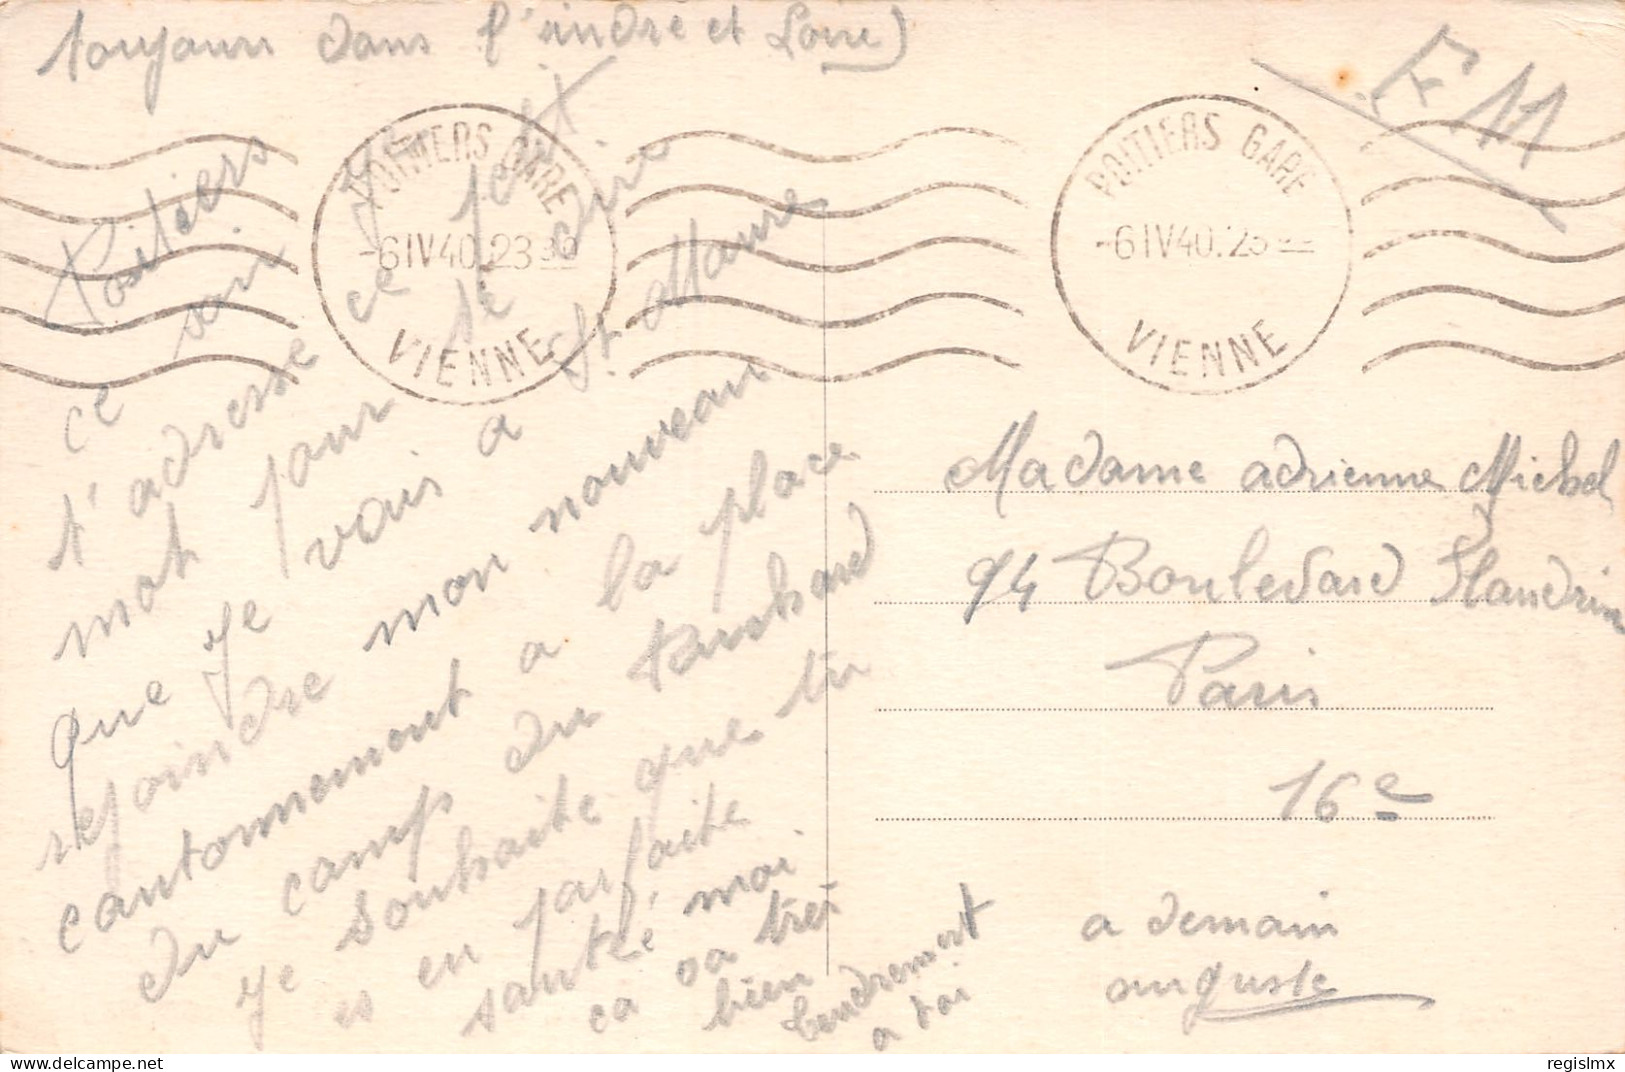 toujours dans l'indre et Loire)
F M
POITIERS GARE
-6 IV 40.23 30
VIENNE
POITIERS GARE
-6 IV 40.23
VIENNE
Poitiers
ce soir je
t'adresse ce petit
mot pour te dire
que je vais a St. Maure
rejoindre mon nouveau
cantonnement a la place
du camp du
je souhaite que tu
es en parfaite
santé moi
ca va tres
bien
tendrement
a toi
Madame adrienne Michel
94 Boulevard Flandrin
Paris
16e
a demain
auguste
Delcampe.net
regislmx